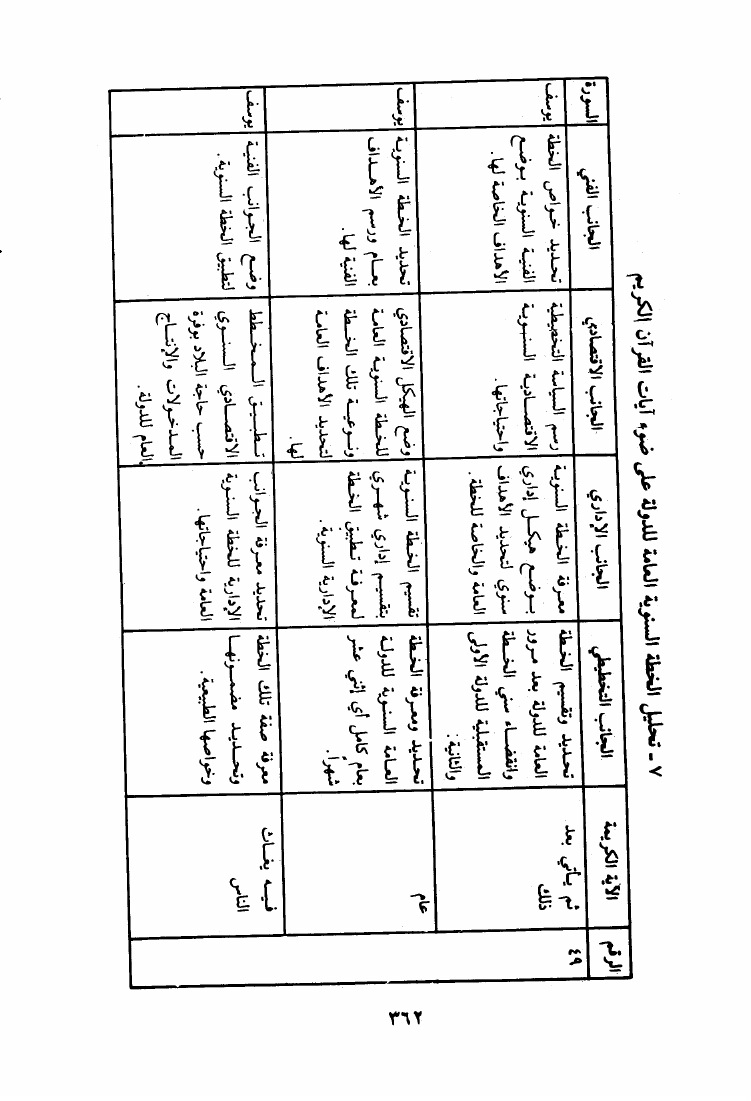 ٧ ـ تحليل الخطة السنوية العامة للدولة على ضوء آيات القرآن الكريم
الرقم
الآية الكريمة
الجانب التخطيطي
الجانب الإداري
الجانب الاقتصادي
الجانب الفني
السورة
٤٩
ثم يأتي بعد
ذلك
تحديد وتقسيم الخطة
العامة للدولة بعد مرور
وانقضاء سني الخطة
المستقبلية للدولة الأولى
والثانية:
معرفة الخطة السنوية
بوضع هيكل إداري
سنوي لتحديد الأهداف
العامة والخاصة للخطة.
رسم السياسة التخطيطية
الاقتصادية السنوية
واحتياجاتها.
تحديد خواص الخطة
الفنية السنوية بوضع
الأهداف الخاصة لها.
يوسف
عام
تحديد ومعرفة الخطة
العامة السنوية للدولة
بعام كامل أي إثني عشر
شهراً.
تقسيم الخطة السنوية
بتقسيم إداري شهري
لمعرفة تطبيق الخطة
الإدارية السنوية.
وضع الهيكل الاقتصادي
للخطة السنوية العامة
ونوعية تلك الخطة
لتحديد الأهداف العامة
لها.
تحديد الخطة السنوية
بعام ورسم الأهداف
الفنية لها.
يوسف
فيه يغاث
الناس
معرفة صفة تلك الخطة
وتحديد مضمونها
وخواصها الطبيعية.
تحديد معرفة الجوانب
الإدارية للخطة السنوية
العامة واحتياجاتها.
تطبيق المخطط
الاقتصادي السنوي
حسب حاجة البلاد بوفرة
المدخولات والإنتاج
العام للدولة.
وضع الجوانب الفنية
لتطبيق الخطة السنوية.
يوسف
٣٦٢